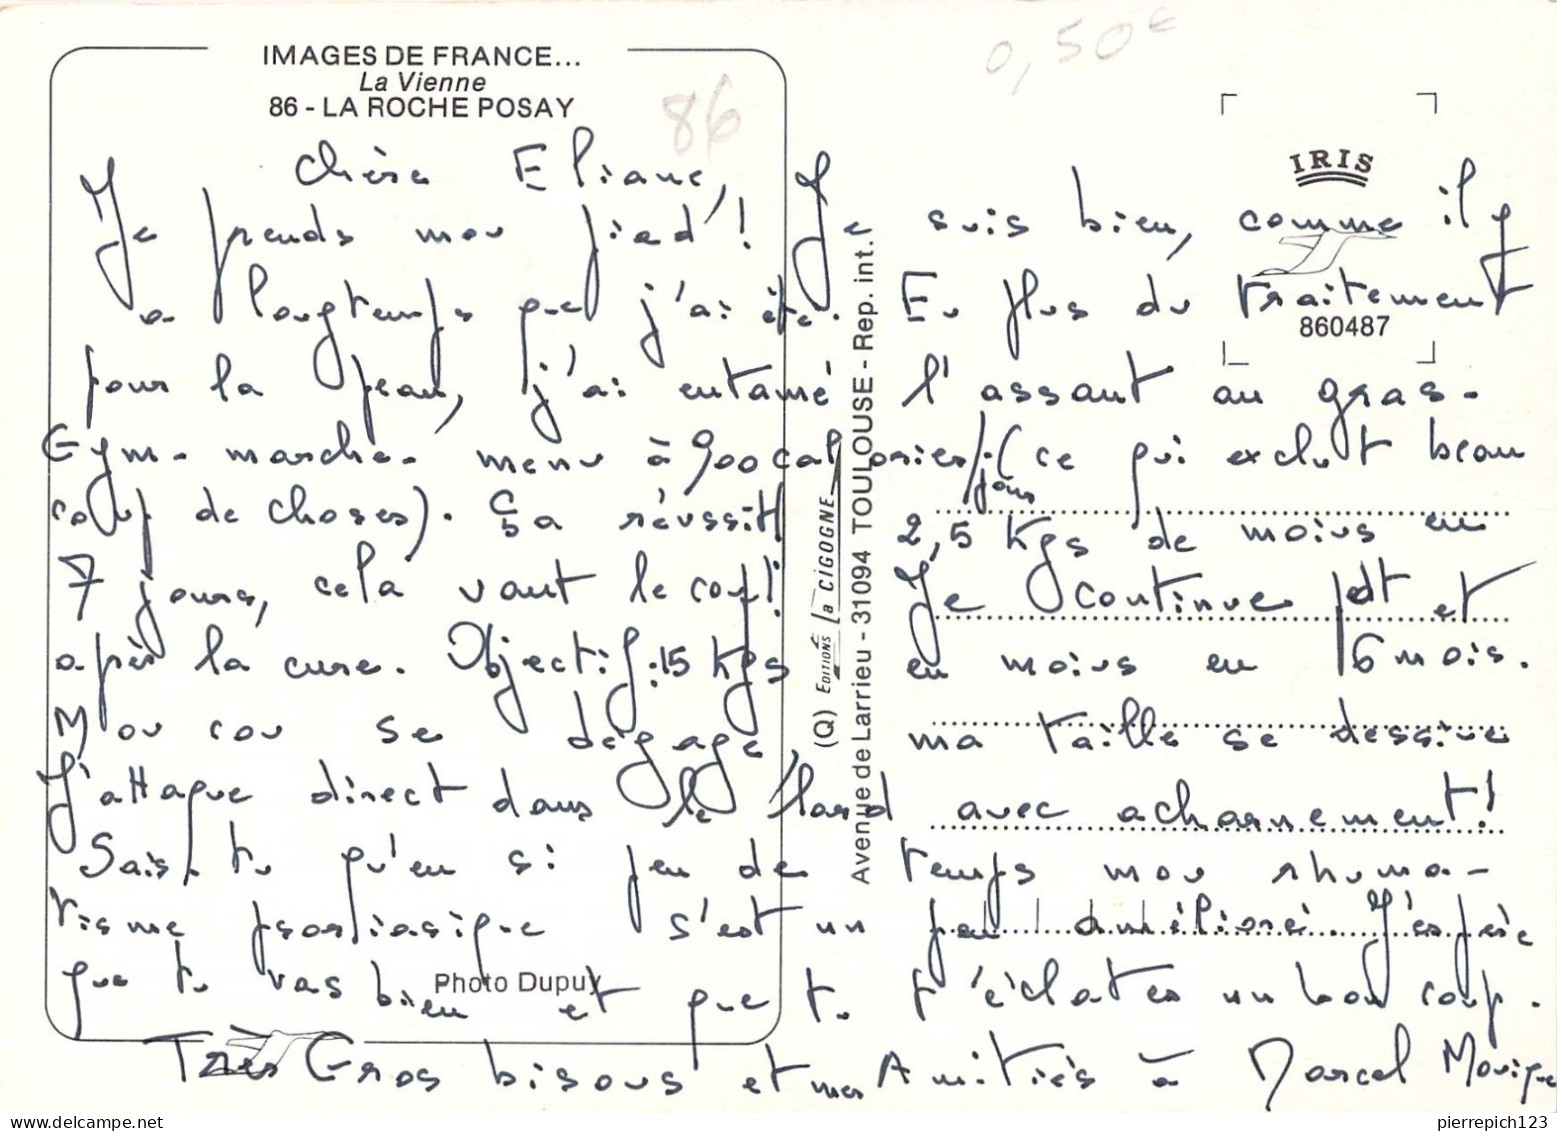 IMAGES DE FRANCE...
La Vienne
86 - LA ROCHE POSAY
86
0,50€
IRIS
860487
Chère Eliane,
Je prends mon pied'! Je suis bien, comme il y
a longtemps que j'ai été. En plus du traitement
pour la peau, j'ai entamé l'assaut au gras -
Gym - marche - menu à 900 calories/jours (ce qui exclut beau
coup de choses). Ça réussit 2,5 Kgs de moins en
7 jours, cela vaut le coup! Je continue pdt et
après la cure. Objectif : 15 Kgs en moins en 6 mois.
Mon cou se dégage, ma taille se dessine
J'attaque direct dans le lard avec acharnement!
Sais-tu qu'en si peu de temps mon rhuma-
tisme psoriasique s'est un peu amélioré. J'espère
que tu vas bien et que tu t'éclates un bon coup.
Très Gros bisous et mes Amitiés à Marcel Monique
Photo Dupuy
(Q) EDITIONS la CIGOGNE
Avenue de Larrieu - 31094 TOULOUSE - Rep. int.
pierrepich123